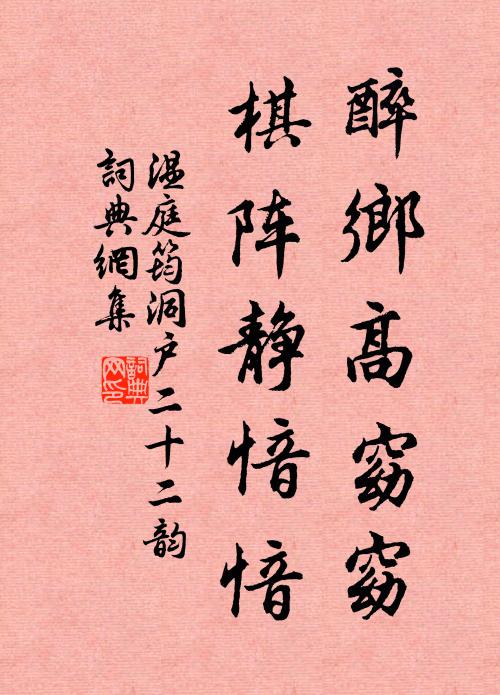 醉鄉高窈窈
棋阵静愔愔
温庭筠洞户二十二韵
詞典網集
詞典网印